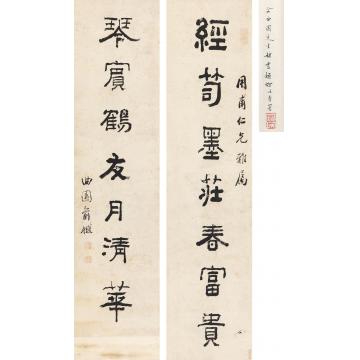 經笥墨莊春富貴
用甫仁兄雅屬
琴賓鶴友月清華
曲園俞樾